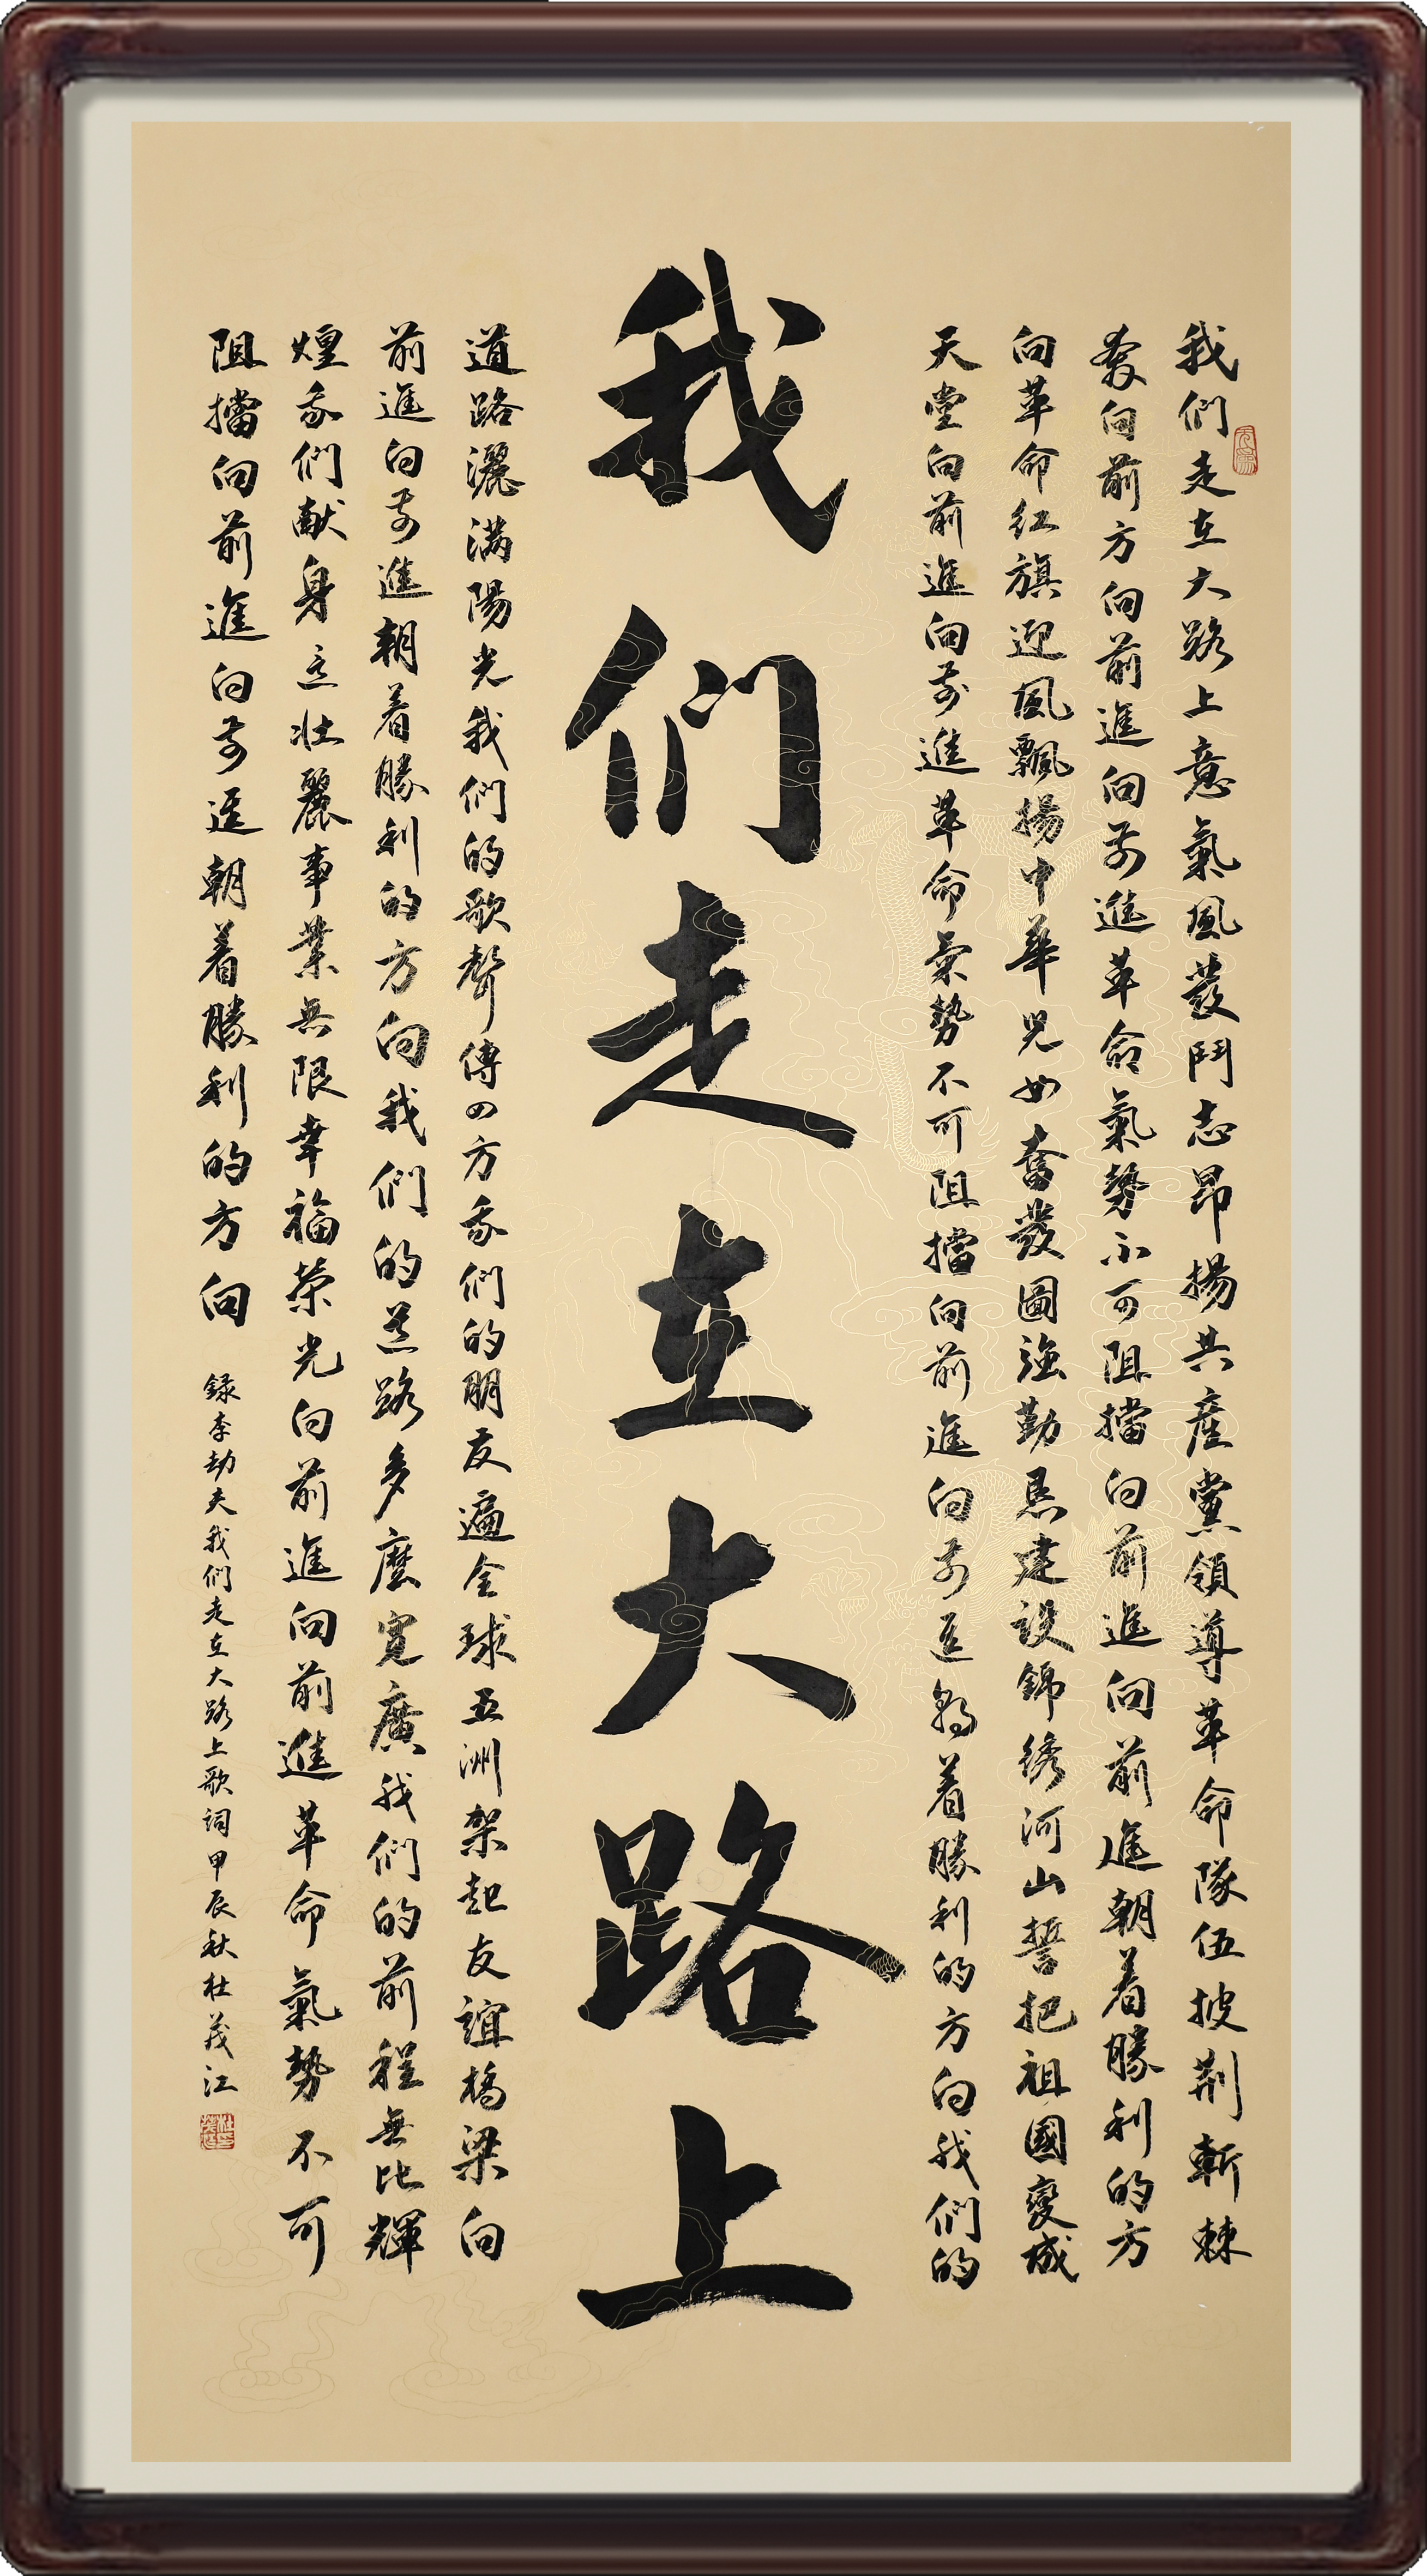 我們走在大路上意氣風發鬥志昂揚共產黨領導革命隊伍披荊斬棘
奔向前方向前進向前進革命氣勢不可阻擋向前進向前進朝着勝利的方
向革命紅旗迎風飄揚中華兒女奮發圖強勤恳建設錦绣河山誓把祖國變成
天堂向前進向前進革命氣勢不可阻擋向前進向前進朝着勝利的方向我們的
我們走在大路上
道路灑滿陽光我們的歌聲傳四方我們的朋友遍全球五洲架起友誼橋梁向
前進向前進朝着勝利的方向我們的道路多麼寬廣我們的前程無比輝
煌我們献身這壯麗事業無限幸福榮光向前進向前進革命氣勢不可
阻擋向前進向前進朝着勝利的方向
錄李劫夫我們走在大路上歌詞甲辰秋杜茂江